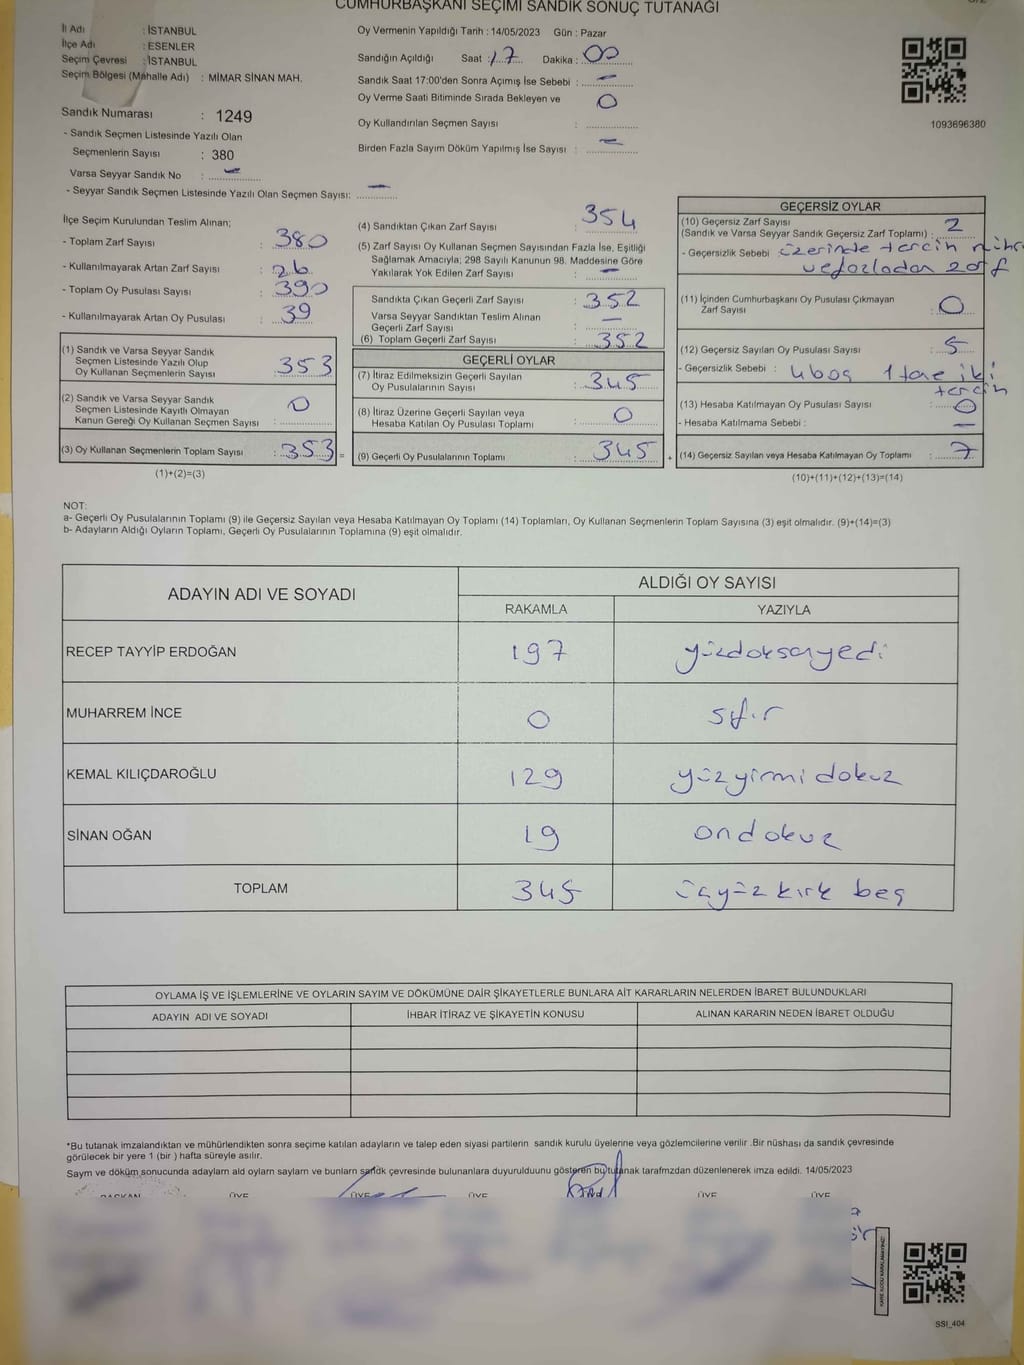 CUMHURBAŞKANI SEÇİMİ SANDIK SONUÇ TUTANAĞI
İl Adı : İSTANBUL
İlçe Adı : ESENLER
Seçim Çevresi : İSTANBUL
Seçim Bölgesi (Mahalle Adı) : MİMAR SİNAN MAH.
Sandık Numarası : 1249
- Sandık Seçmen Listesinde Yazılı Olan
Seçmenlerin Sayısı : 380
Varsa Seyyar Sandık No : —
- Seyyar Sandık Seçmen Listesinde Yazılı Olan Seçmen Sayısı: —
Oy Vermenin Yapıldığı Tarih : 14/05/2023 Gün : Pazar
Sandığın Açıldığı Saat : 17 Dakika : 00
Sandık Saat 17:00'den Sonra Açımış İse Sebebi : —
Oy Verme Saati Bitiminde Sırada Bekleyen ve 0
Oy Kullandırılan Seçmen Sayısı :
Birden Fazla Sayım Döküm Yapılmış İse Sayısı : —
1093696380
İlçe Seçim Kurulundan Teslim Alınan;
- Toplam Zarf Sayısı : 380
- Kullanılmayarak Artan Zarf Sayısı : 26
- Toplam Oy Pusulası Sayısı : 390
- Kullanılmayarak Artan Oy Pusulası : 39
(1) Sandık ve Varsa Seyyar Sandık
Seçmen Listesinde Yazılı Olup
Oy Kullanan Seçmenlerin Sayısı : 353
(2) Sandık ve Varsa Seyyar Sandık
Seçmen Listesinde Kayıtlı Olmayan
Kanun Gereği Oy Kullanan Seçmen Sayısı : 0
(3) Oy Kullanan Seçmenlerin Toplam Sayısı : 353 =
(1)+(2)=(3)
(4) Sandıktan Çıkan Zarf Sayısı : 354
(5) Zarf Sayısı Oy Kullanan Seçmen Sayısından Fazla İse, Eşitliği
Sağlamak Amacıyla; 298 Sayılı Kanunun 98. Maddesine Göre
Yakılarak Yok Edilen Zarf Sayısı : —
Sandıkta Çıkan Geçerli Zarf Sayısı : 352
Varsa Seyyar Sandıktan Teslim Alınan
Geçerli Zarf Sayısı : —
(6) Toplam Geçerli Zarf Sayısı : 352
GEÇERLİ OYLAR
(7) İtiraz Edilmeksizin Geçerli Sayılan
Oy Pusulalarının Sayısı : 345
(8) İtiraz Üzerine Geçerli Sayılan veya
Hesaba Katılan Oy Pusulası Toplamı : 0
(9) Geçerli Oy Pusulalarının Toplamı : 345 +
GEÇERSİZ OYLAR
(10) Geçersiz Zarf Sayısı
(Sandık ve Varsa Seyyar Sandık Geçersiz Zarf Toplamı) : 2
- Geçersizlik Sebebi : üzerinde tercih
zarf
(11) İçinden Cumhurbaşkanı Oy Pusulası Çıkmayan
Zarf Sayısı : 0
(12) Geçersiz Sayılan Oy Pusulası Sayısı : 5
- Geçersizlik Sebebi : 4 boş 1 tane iki
tercih
(13) Hesaba Katılmayan Oy Pusulası Sayısı : 0
- Hesaba Katılmama Sebebi : —
(14) Geçersiz Sayılan veya Hesaba Katılmayan Oy Toplamı : 7
(10)+(11)+(12)+(13)=(14)
NOT:
a- Geçerli Oy Pusulalarının Toplamı (9) ile Geçersiz Sayılan veya Hesaba Katılmayan Oy Toplamı (14) Toplamları, Oy Kullanan Seçmenlerin Toplam Sayısına (3) eşit olmalıdır. (9)+(14)=(3)
b- Adayların Aldığı Oyların Toplamı, Geçerli Oy Pusulalarının Toplamına (9) eşit olmalıdır.
ADAYIN ADI VE SOYADI
ALDIĞI OY SAYISI
RAKAMLA YAZIYLA
RECEP TAYYİP ERDOĞAN 197 yüzdoksanyedi
MUHARREM İNCE 0 sıfır
KEMAL KILIÇDAROĞLU 129 yüzyirmi dokuz
SİNAN OĞAN 19 ondokuz
TOPLAM 345 üçyüz kırk beş
OYLAMA İŞ VE İŞLEMLERİNE VE OYLARIN SAYIM VE DÖKÜMÜNE DAİR ŞİKAYETLERLE BUNLARA AİT KARARLARIN NELERDEN İBARET BULUNDUKLARI
ADAYIN ADI VE SOYADI İHBAR İTİRAZ VE ŞİKAYETİN KONUSU ALINAN KARARIN NEDEN İBARET OLDUĞU
*Bu tutanak imzalandıktan ve mühürlendikten sonra seçime katılan adayların ve talep eden siyasi partilerin sandık kurulu üyelerine veya gözlemcilerine verilir .Bir nüshası da sandık çevresinde
görülecek bir yere 1 (bir ) hafta süreyle asılır.
Saym ve döküm sonucunda adaylarm ald oylarn saylarn ve bunlarn sandk çevresinde bulunanlara duyurulduunu gösteren bu tutanak tarafmzdan düzenlenerek imza edildi. 14/05/2023
BAŞKAN ÜYE ÜYE ÜYE ÜYE ÜYE
KARE KODU KARALAMAYINIZ!
SSI_404